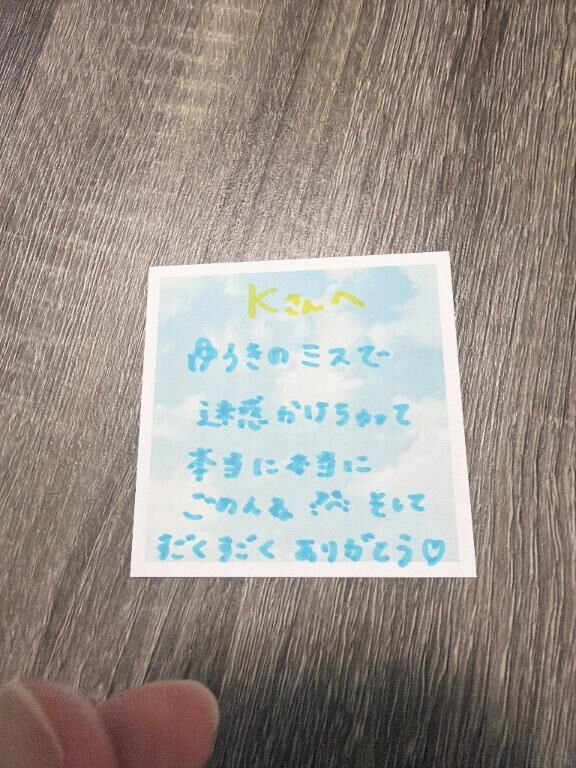 Kさんへ
ゆうきのミスで
迷惑かけちゃって
本当に本当に
ごめんね そして
すごくすごく ありがとう♡